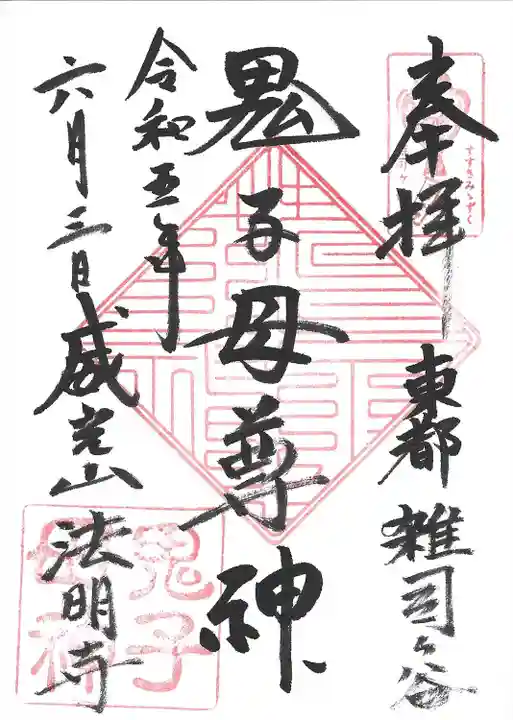 奉拝
東都 雑司ヶ谷
すすきみゝずく
鬼子母尊神
令和五年
六月三日
威光山 法明寺
鬼子
母神